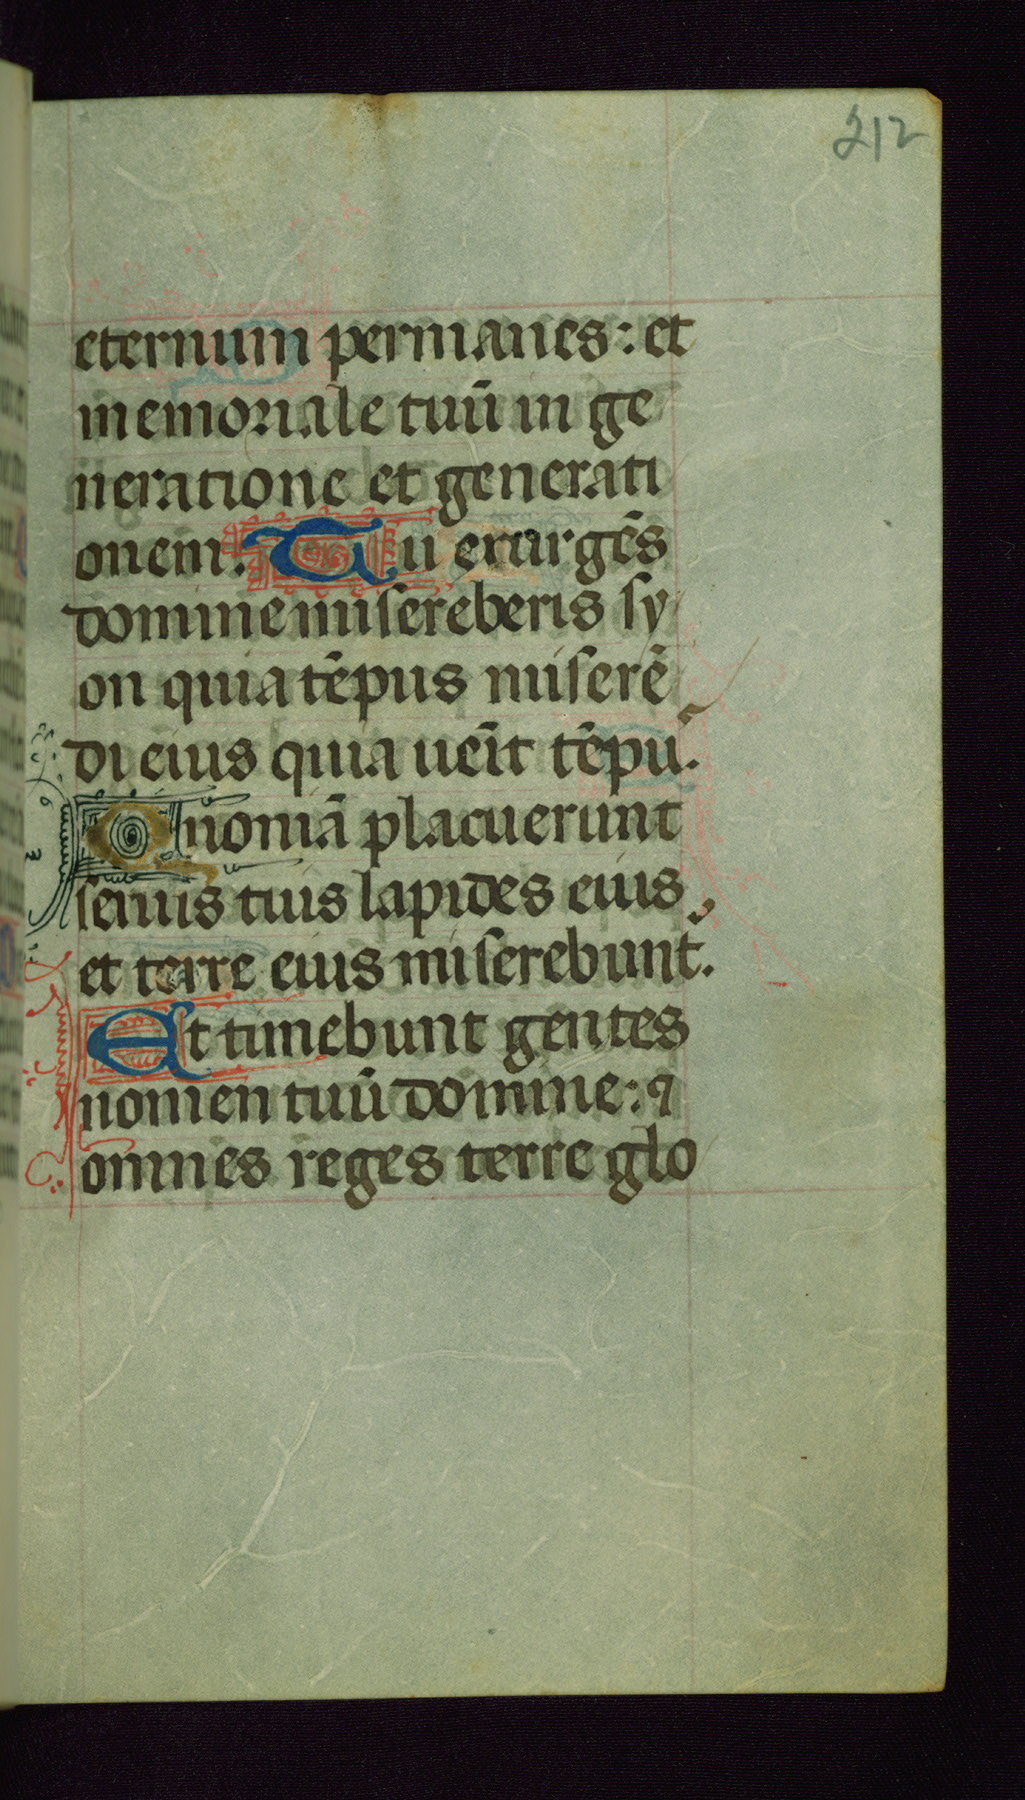 212
eternum permanes: et
memoriale tuū in ge
neratione et generati
onem. Tu exurgēs
domine misereberis sy
on quia tēpus miserē
di eius quia uēit tēpu.
Quoniā placuerunt
seruis tuis lapides eius
et terre eius miserebunt̄.
Et timebunt gentes
nomen tuū domine: ⁊
omnes reges terre glo